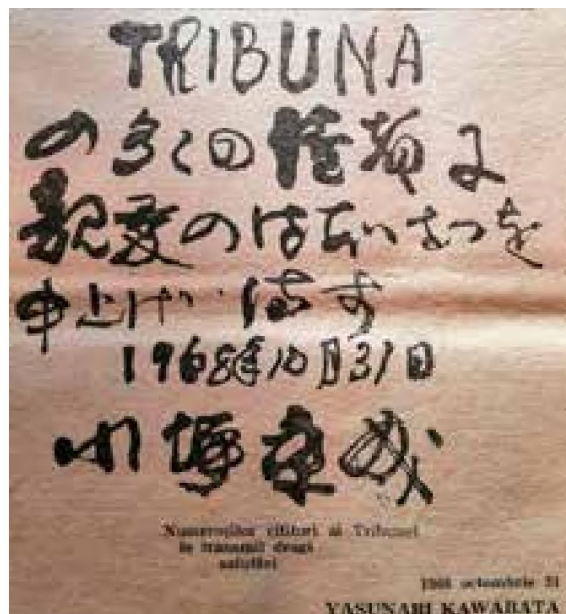 TRIBUNA
の多くの
親愛の あいさつを
申上げます
1968年10月31日
川端康成
Numeroșilor cititori ai Tribunei
le transmit dragi
salutări
1968 octombrie 31
YASUNARI KAWABATA